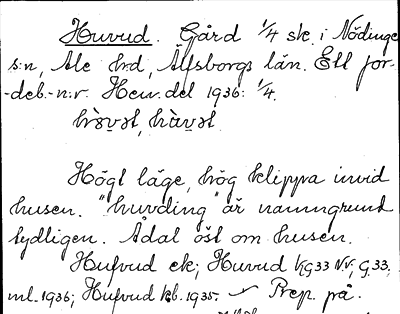 Huvud. Gård 1/4 sk. i Nödinge
s:n, Ale h:d, Älfsborgs län. Ett jor-
-deb.-n:r. Hem.del 1936: 1/4.
Högt läge, hög klippa invid
husen. "huvding" är namngrund
tydligen. Ådal öst om husen.
Hufvud ek; Huvud G33 N.V; G.33,
ml. 1936; Hufvud kb. 1935. Prep. på.